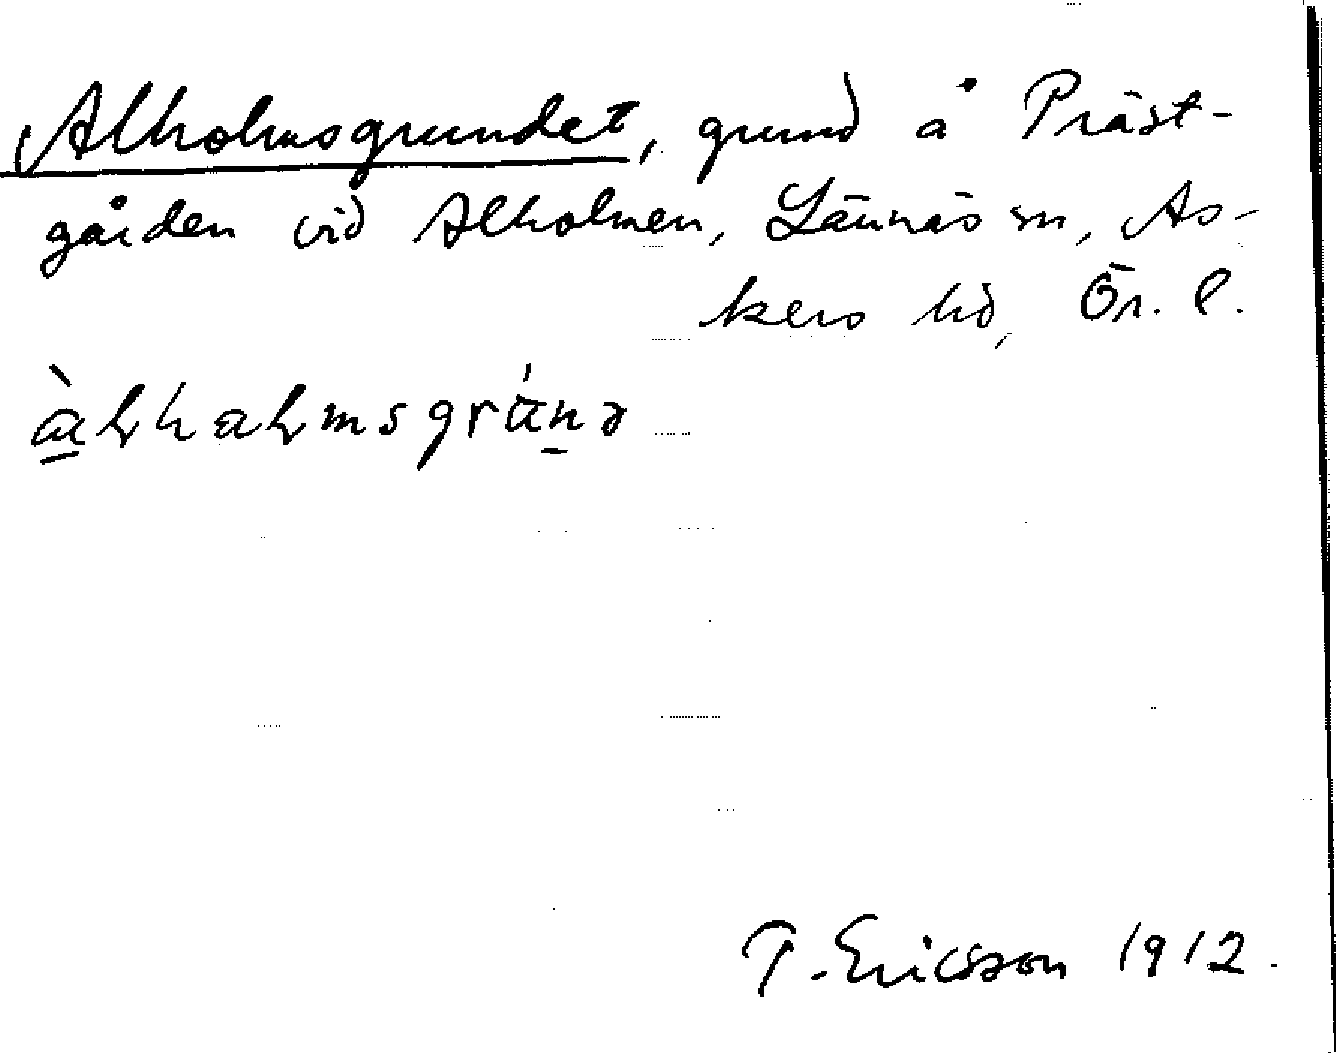 Alholmsgrundet, grund å Präst-
gården vid Alholmen, Lännäs sn, As-
kers hd, Ör. l.
T. Ericsson 1912.